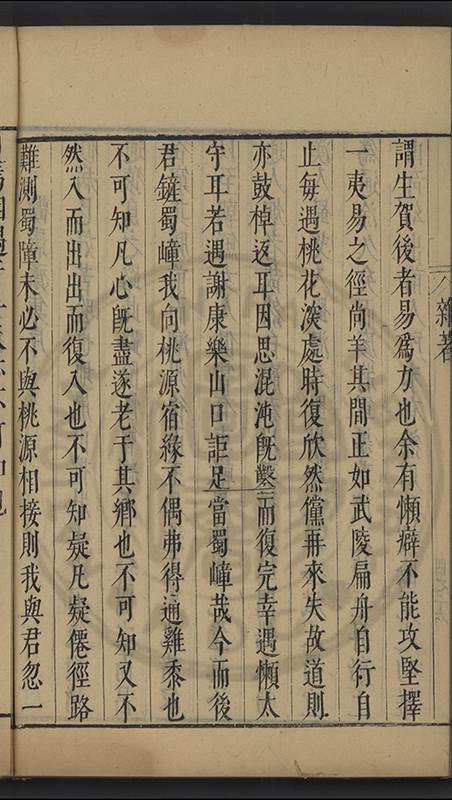 雜著
謂生賀後者易為力也余有懶癖不能攻堅擇
一夷易之徑尚羊其間正如武陵扁舟自行自
止每遇桃花深處時復欣然儻再來失故道則
亦鼓棹返耳因思混沌旣鑿而復完幸遇懶太
守耳若遇謝康樂山口詎足當蜀㠉哉今而後
君鏟蜀㠉我向桃源宿緣不偶弗得通雞黍也
不可知凡心旣盡遂老于其鄉也不可知又不
然入而出出而復入也不可知疑凡疑僊徑路
難測蜀㠉未必不與桃源相接則我與君忽一